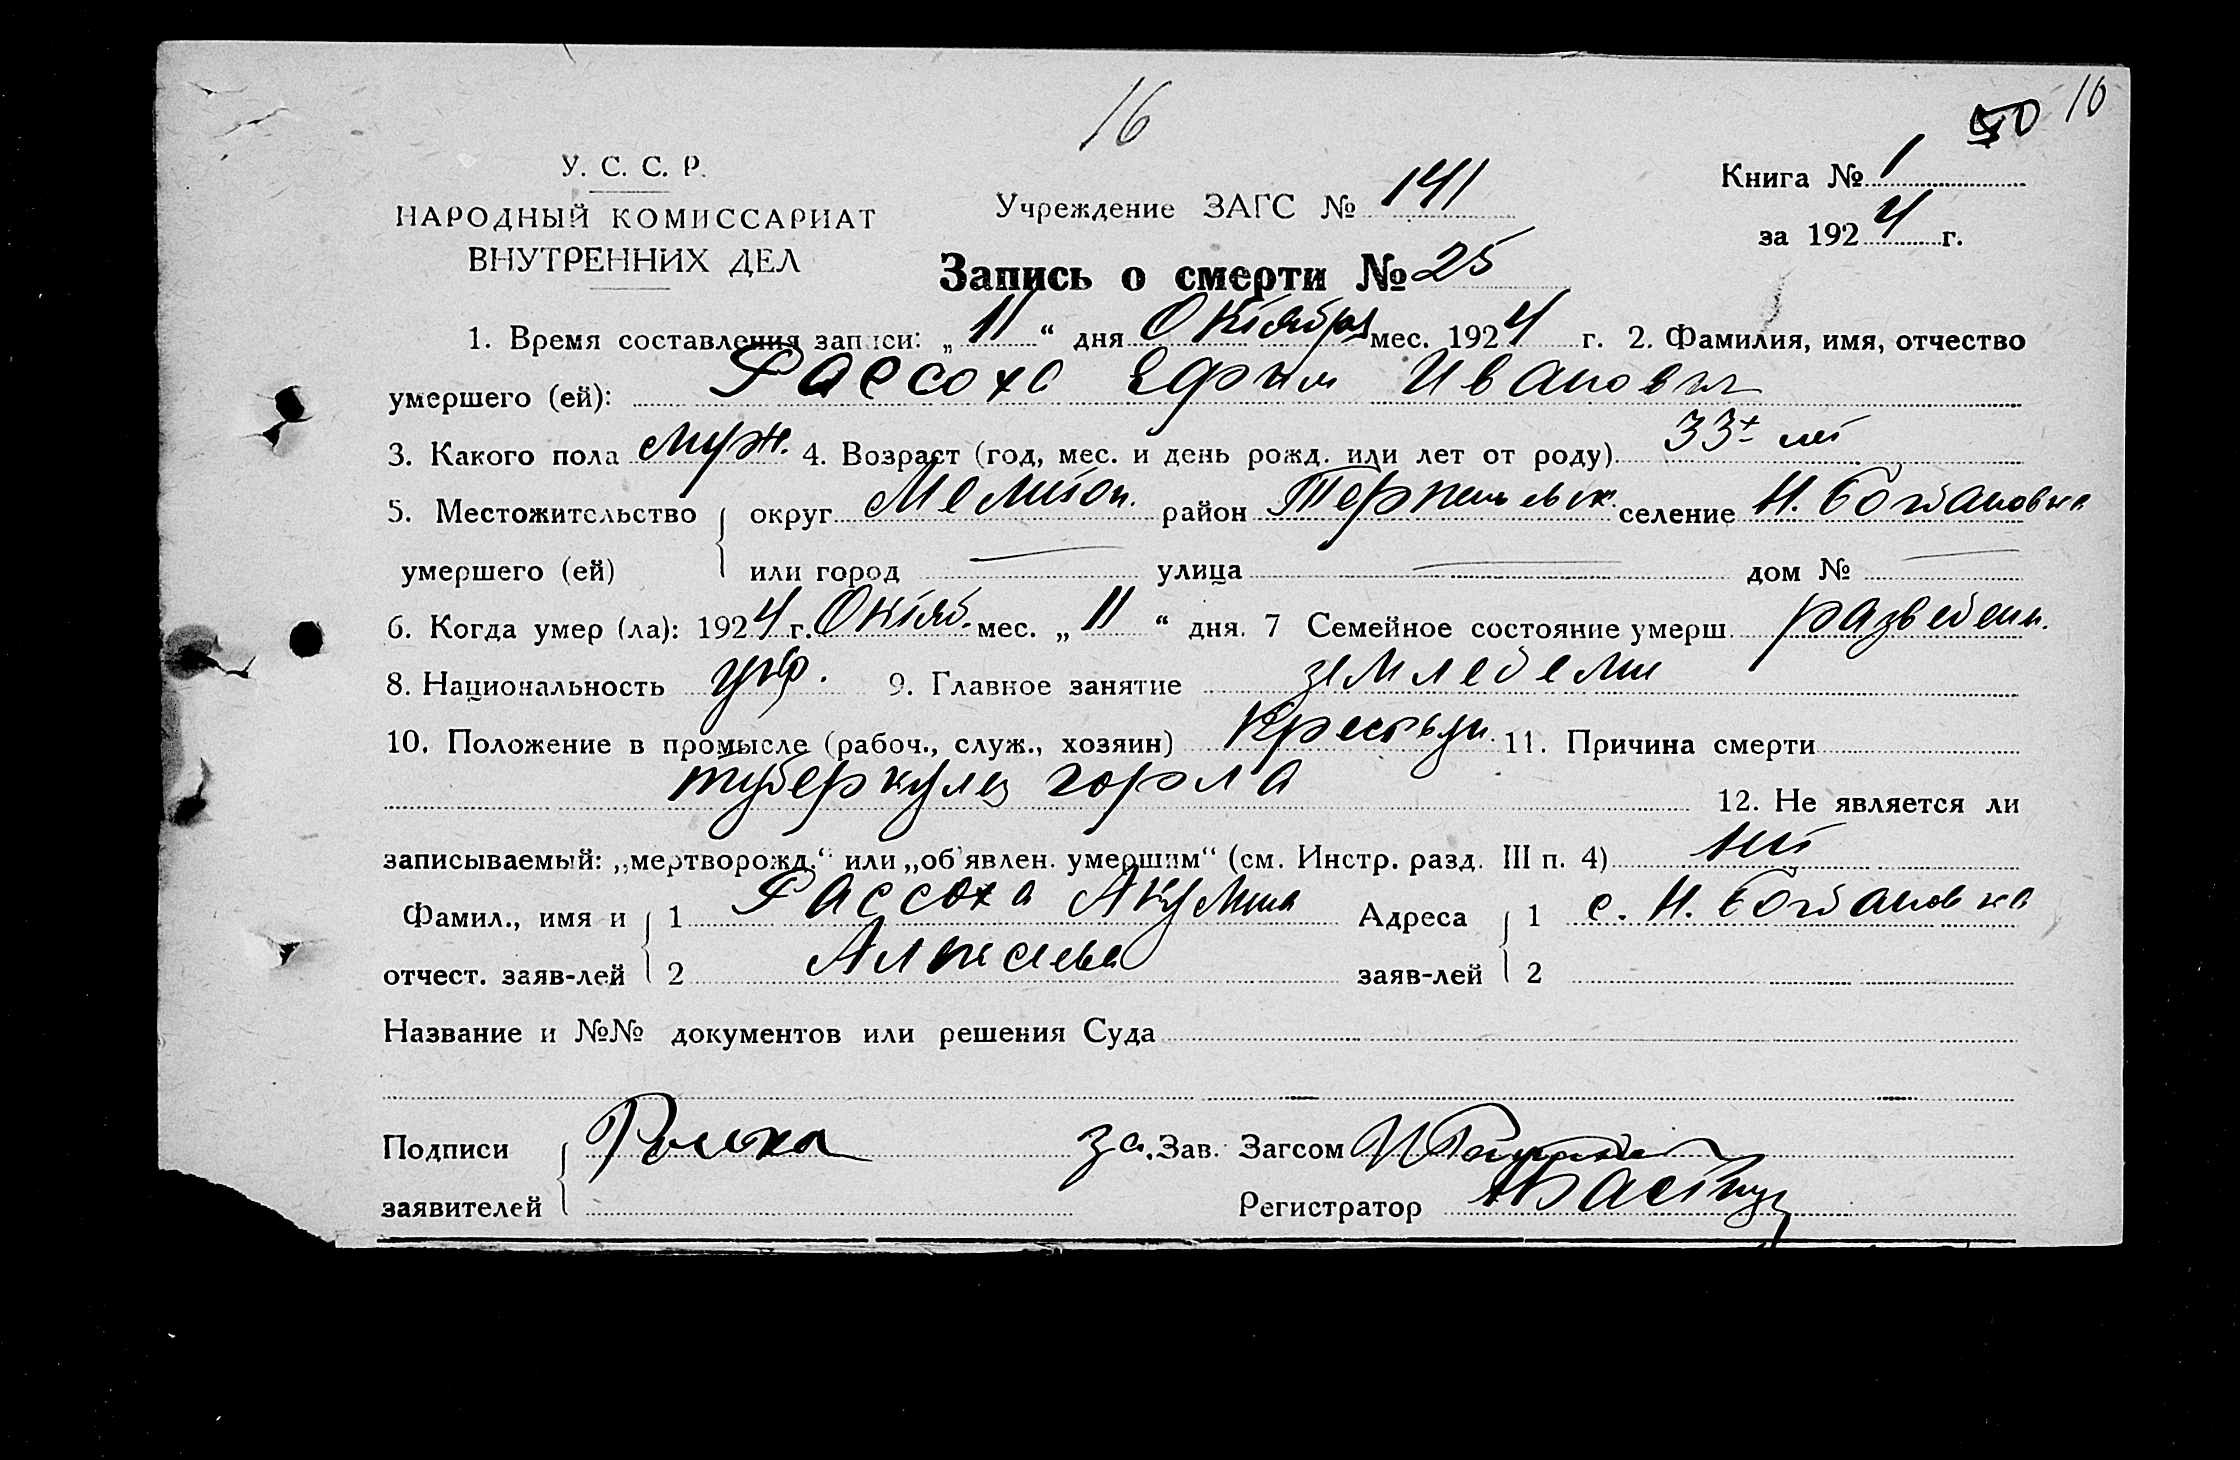 16
50 10
У. С. С. Р.
НАРОДНЫЙ КОМИССАРИАТ
ВНУТРЕННИХ ДЕЛ
Учреждение ЗАГС № 141
Книга № 1
за 1924 г.
Запись о смерти № 25
1. Время составления записи: „ 11 “ дня Октября мес. 1924 г. 2. Фамилия, имя, отчество
умершего (ей): Рассоха Ефим Иванович
3. Какого пола муж. 4. Возраст (год, мес. и день рожд. или лет от роду) 33х лет
5. Местожительство округ Мелитоп. район Терпеньевск. селение Н. Богдановка
умершего (ей) или город — улица — дом № —
6. Когда умер (ла): 1924 г. Октяб. мес. „ 11 “ дня. 7 Семейное состояние умерш. разведен.
8. Национальность укр. 9. Главное занятие земледели
10. Положение в промысле (рабоч., служ., хозяин) Крестьян. 11. Причина смерти
туберкулез горла 12. Не является ли
записываемый: „мертворожд.“ или „об'явлен. умершим“ (см. Инстр. разд. III п. 4) нет
Фамил., имя и 1 Рассоха Акулина Адреса 1 с. Н. Богдановка
отчест. заяв-лей 2 Алексеева заяв-лей 2
Название и №№ документов или решения Суда
Подписи за. Зав. Загсом
заявителей Регистратор